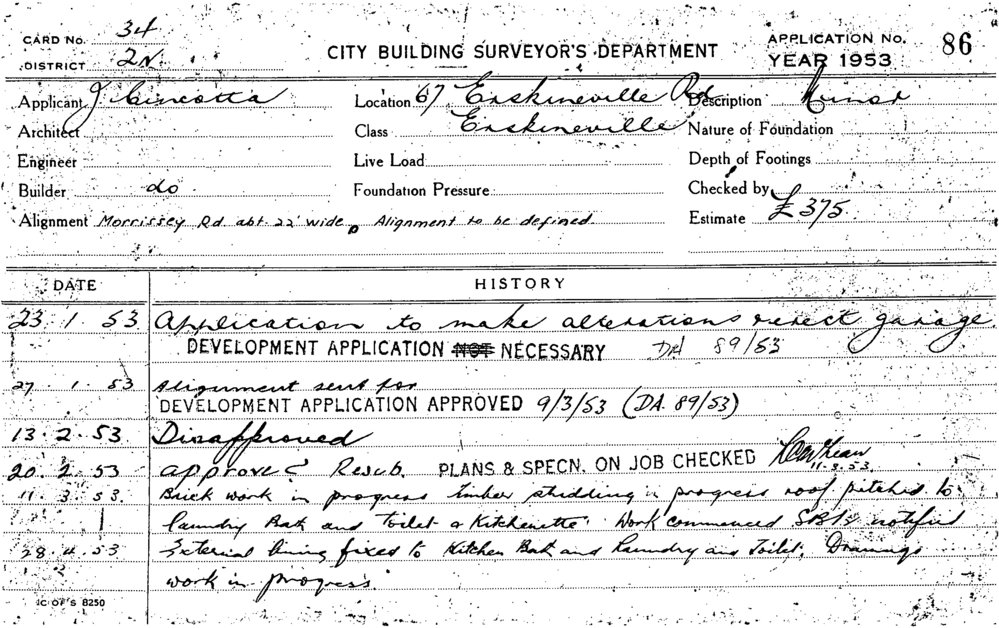 CARD No. 34
DISTRICT 2N.
CITY BUILDING SURVEYOR'S DEPARTMENT
APPLICATION No. 86
YEAR 1953
Applicant J Cincotta
Location 67 Erskineville Rd
Description Minor
Architect
Class Erskineville
Nature of Foundation
Engineer
Live Load
Depth of Footings
Builder do
Foundation Pressure
Checked by
Alignment Morrissey Rd. abt. 22' wide. Alignment to be defined
Estimate £375
DATE HISTORY
23. 1. 53 Application to make alterations & erect garage.
DEVELOPMENT APPLICATION NOT NECESSARY DA 89/53
27. 1. 53 Alignment sent for
DEVELOPMENT APPLICATION APPROVED 9/3/53 (DA. 89/53)
13. 2. 53 Disapproved
20. 2. 53 approved Resub. PLANS & SPECN. ON JOB CHECKED 11.3.53.
11. 3. 53. Brick work in progress timber studding in progress roof pitched to
laundry Bath and toilet & Kitchenette. Work commenced notified
28. 4. 53 External lining fixed to Kitchen Bath and Laundry and Toilet.
work in progress.
IC OF S 8250